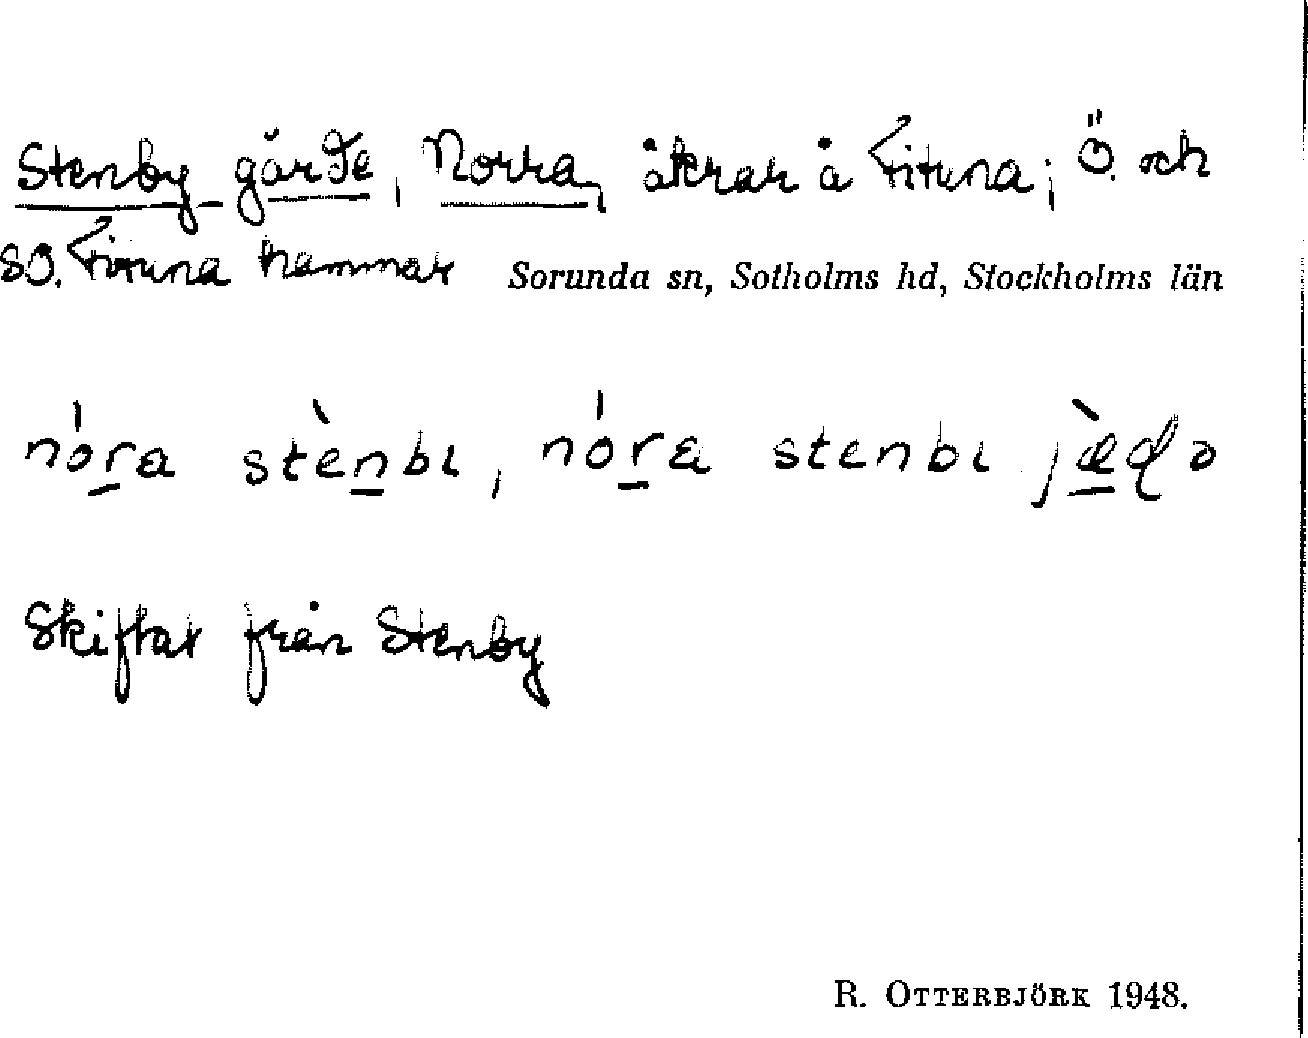 Stenby gärde, Norra, åkrar å Fituna; Ö. och
SO. Fituna hammar Sorunda sn, Sotholms hd, Stockholms län
nora stenbi, nora stenbi jædə
Skiftat från Stenby
R. OTTERBJÖRK 1948.